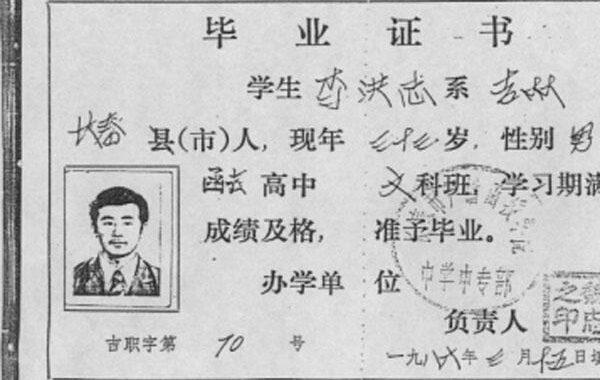 毕业证书
学生 李洪志 系 吉林
长春 县(市)人, 现年 岁, 性别 男
函授 高中 文 科班, 学习期满
成绩及格, 准予毕业。
办学单位
中学中专部
负责人
之印
吉职字第 70 号
一九八六年 七 月 十五 日填